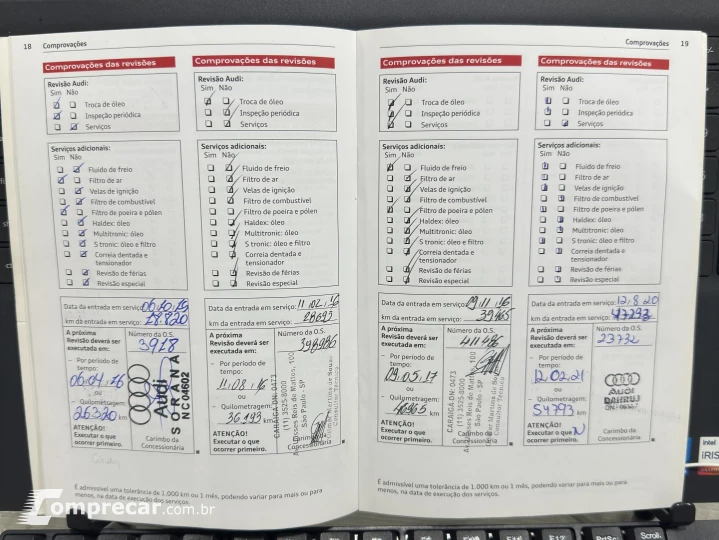 18 Comprovações
Comprovações das revisões
Revisão Audi:
Sim Não
Troca de óleo
Inspeção periódica
Serviços
Serviços adicionais:
Sim Não
Fluido de freio
Filtro de ar
Velas de ignição
Filtro de combustível
Filtro de poeira e pólen
Haldex: óleo
Multitronic: óleo
S tronic: óleo e filtro
Correia dentada e
tensionador
Revisão de férias
Revisão especial
Data da entrada em serviço:
km da entrada em serviço:
A próxima
Revisão deverá ser
executada em:
– Por período de
tempo:
06.04.16
ou
– Quilometragem:
26320 km
ATENÇÃO!
Executar o que
ocorrer primeiro.
Número da O.S.
3918
Audi
SORANA
NC 04602
Carimbo da
Concessionária
Comprovações das revisões
Revisão Audi:
Sim Não
Troca de óleo
Inspeção periódica
Serviços
Serviços adicionais:
Sim Não
Fluido de freio
Filtro de ar
Velas de ignição
Filtro de combustível
Filtro de poeira e pólen
Haldex: óleo
Multitronic: óleo
S tronic: óleo e filtro
Correia dentada e
tensionador
Revisão de férias
Revisão especial
Data da entrada em serviço: 11.02.16
km da entrada em serviço: 28693
A próxima
Revisão deverá ser
executada em:
– Por período de
tempo:
11.08.16
ou
– Quilometragem:
km
ATENÇÃO!
Executar o que
ocorrer primeiro.
Número da O.S.
398986
CARAIGA DN: 0473
(11) 3525-8000
São Paulo - SP
Carimbo da
Concessionária
É admissível uma tolerância de 1.000 km ou 1 mês, podendo variar para mais ou para
menos, na data de execução dos serviços.
Comprovações 19
Comprovações das revisões
Revisão Audi:
Sim Não
Troca de óleo
Inspeção periódica
Serviços
Serviços adicionais:
Sim Não
Fluido de freio
Filtro de ar
Velas de ignição
Filtro de combustível
Filtro de poeira e pólen
Haldex: óleo
Multitronic: óleo
S tronic: óleo e filtro
Correia dentada e
tensionador
Revisão de férias
Revisão especial
Data da entrada em serviço: 09.11.16
km da entrada em serviço: 39465
A próxima
Revisão deverá ser
executada em:
– Por período de
tempo:
09.05.17
ou
– Quilometragem:
km
ATENÇÃO!
Executar o que
ocorrer primeiro.
Número da O.S.
411486
CARAIGA DN: 0473
(11) 3525-8000
São Paulo - SP
Carimbo da
Concessionária
Comprovações das revisões
Revisão Audi:
Sim Não
Troca de óleo
Inspeção periódica
Serviços
Serviços adicionais:
Sim Não
Fluido de freio
Filtro de ar
Velas de ignição
Filtro de combustível
Filtro de poeira e pólen
Haldex: óleo
Multitronic: óleo
S tronic: óleo e filtro
Correia dentada e
tensionador
Revisão de férias
Revisão especial
Data da entrada em serviço: 12.8.20
km da entrada em serviço: 47293
A próxima
Revisão deverá ser
executada em:
– Por período de
tempo:
12.02.21
ou
– Quilometragem:
54793 km
ATENÇÃO!
Executar o que
ocorrer primeiro.
Número da O.S.
23732
Audi
Carimbo da
Concessionária
É admissível uma tolerância de 1.000 km ou 1 mês, podendo variar para mais ou para
menos, na data de execução dos serviços.
intel
IRIS
Comprecar
.com.br
F12
PrtSc
Scroll